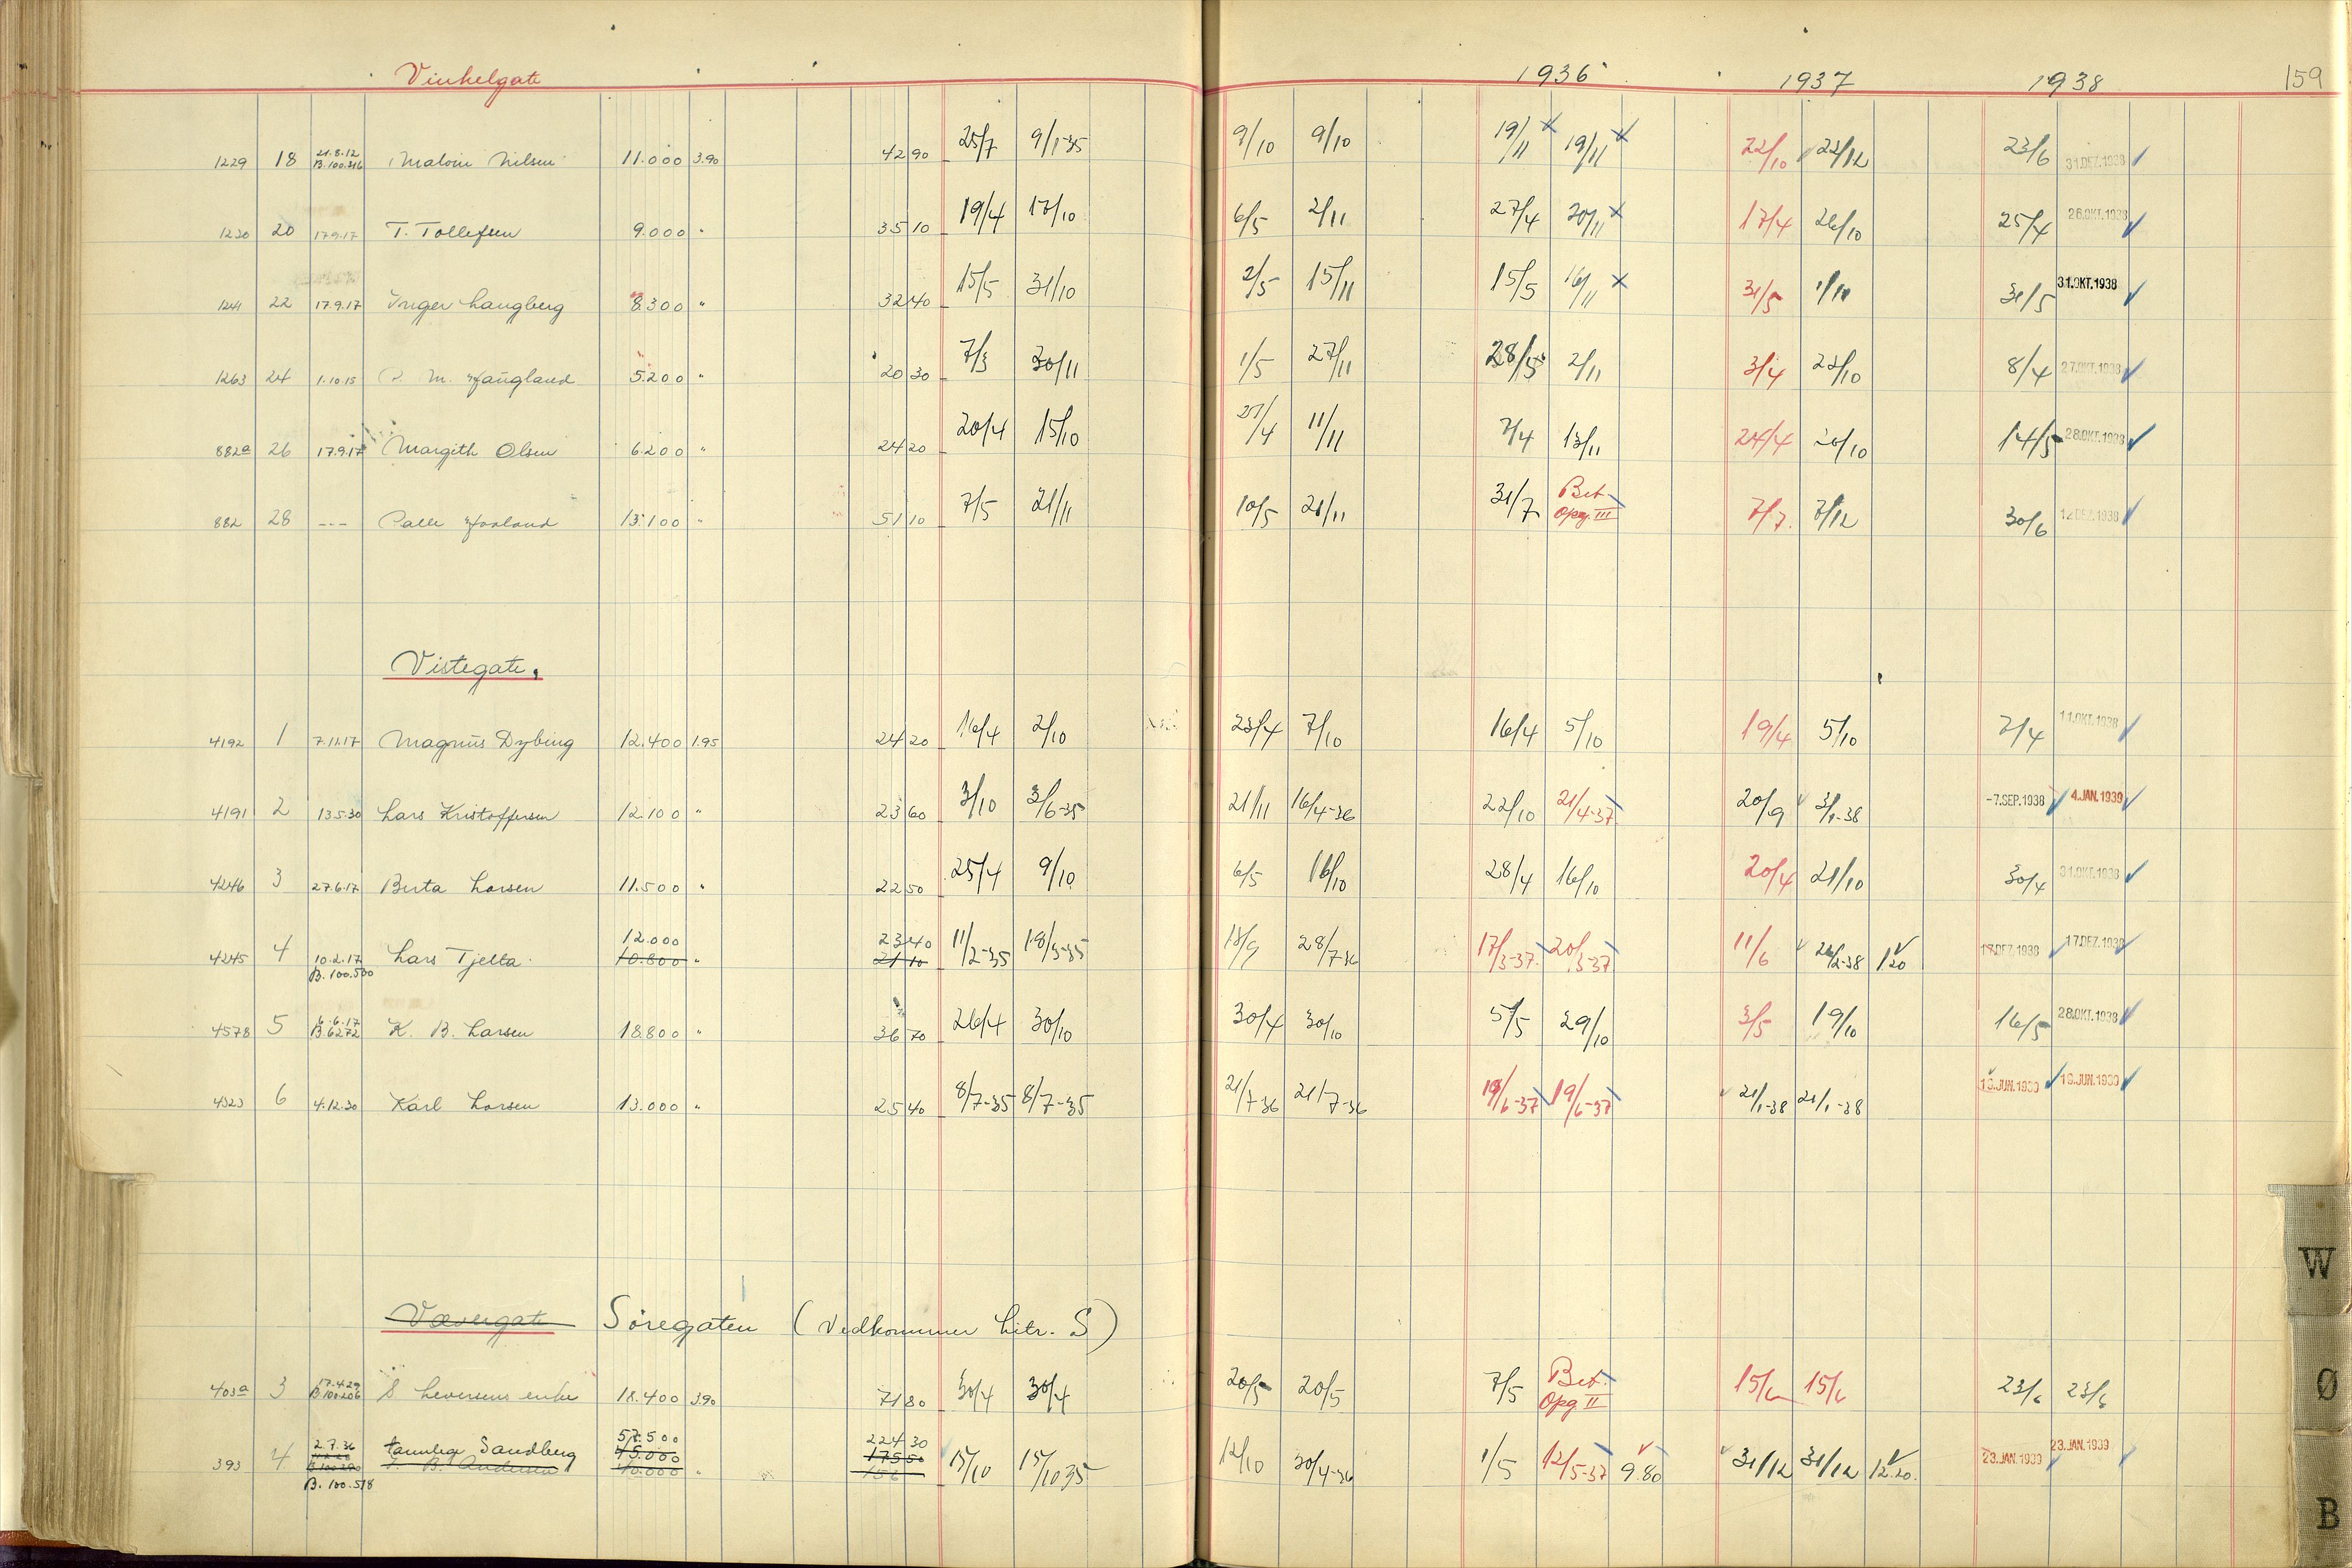 Vinkelgate 1936 1937 1938 159
1229 18 21.8.12 B.100.316 Maloni Nilsen 11.000 3.90 42 90 25/7 9/1-35 9/10 9/10 19/11 x 19/11 x 22/10 22/12 23/6 31.DEZ.1938 ✓
1230 20 17.9.17 T. Tollefsen 9.000 " 35 10 19/4 17/10 6/5 2/11 27/4 20/11 x 17/4 26/10 25/4 26.OKT.1938 ✓
1241 22 17.9.17 Inger Langberg 8.300 " 32 40 15/5 31/10 2/5 15/11 15/5 16/11 x 31/5 1/11 31/5 31.OKT.1938 ✓
1263 24 1.10.15 M. Haugland 5.200 " 20 30 7/3 30/11 1/5 27/11 28/5 2/11 3/4 22/10 8/4 27.OKT.1938 ✓
882a 26 17.9.17 Margith Olsen 6.200 " 24 20 20/4 15/10 27/4 11/11 7/4 13/11 24/4 20/10 14/5 28.OKT.1938 ✓
882 28 --- Palle Forland 13.100 " 51 10 7/5 21/11 10/5 21/11 31/7 Bet. Opg. III 7/7 7/12 30/6 12.DEZ.1938 ✓
Vistegate.
4192 1 7.11.17 Magnus Dybing 12.400 1.95 24 20 16/4 2/10 23/4 7/10 16/4 5/10 19/4 5/10 7/4 11.OKT.1938 ✓
4191 2 13.5.30 Lars Kristoffersen 12.100 " 23 60 3/10 3/6-35 21/11 16/4-36 22/10 21/4-37 20/9 3/1-38 -7.SEP.1938 ✓ 4.JAN.1939 ✓
4246 3 27.6.17 Berta Larsen 11.500 " 22 50 25/4 9/10 6/5 16/10 28/4 16/10 20/4 21/10 30/4 31.OKT.1938 ✓
4245 4 10.2.17 B.100.530 Lars Tjelta 12.000 10.800 " 23 40 21 10 11/2-35 18/3-35 13/9 28/7-36 17/3-37 20/3-37 11/6 26/2-38 1.20 17.DEZ.1938 ✓ 17.DEZ.1938 ✓
4578 5 6.6.17 B 6272 K. B. Larsen 18.800 " 36 70 26/4 30/10 30/4 30/10 5/5 29/10 3/5 19/10 16/5 28.OKT.1938 ✓
4323 6 4.12.30 Karl Larsen 13.000 " 25 40 8/7-35 8/7-35 21/7-36 21/7-36 19/6-37 19/6-37 21/1-38 21/1-38 16.JUN.1939 ✓ 16.JUN.1939 ✓
Vævergate Söregaten (Vedkommer Litr. S)
403a 3 17.4.29 B 100.206 S. Leversens enke 18.400 3.90 71 80 30/4 30/4 20/5 20/5 7/5 Bet. Opg. II 15/6 15/6 23/6 23/6
393 4 2.7.36 B.100.518 Sandberg 57.500 45.000 40.000 " 224 30 175 50 156 15/10 15/10 35 12/10 30/4-36 1/5 12/5-37 9.80 31/12 31/12 12.20. 23.JAN.1939 23.JAN.1939 ✓
W
Ø
B